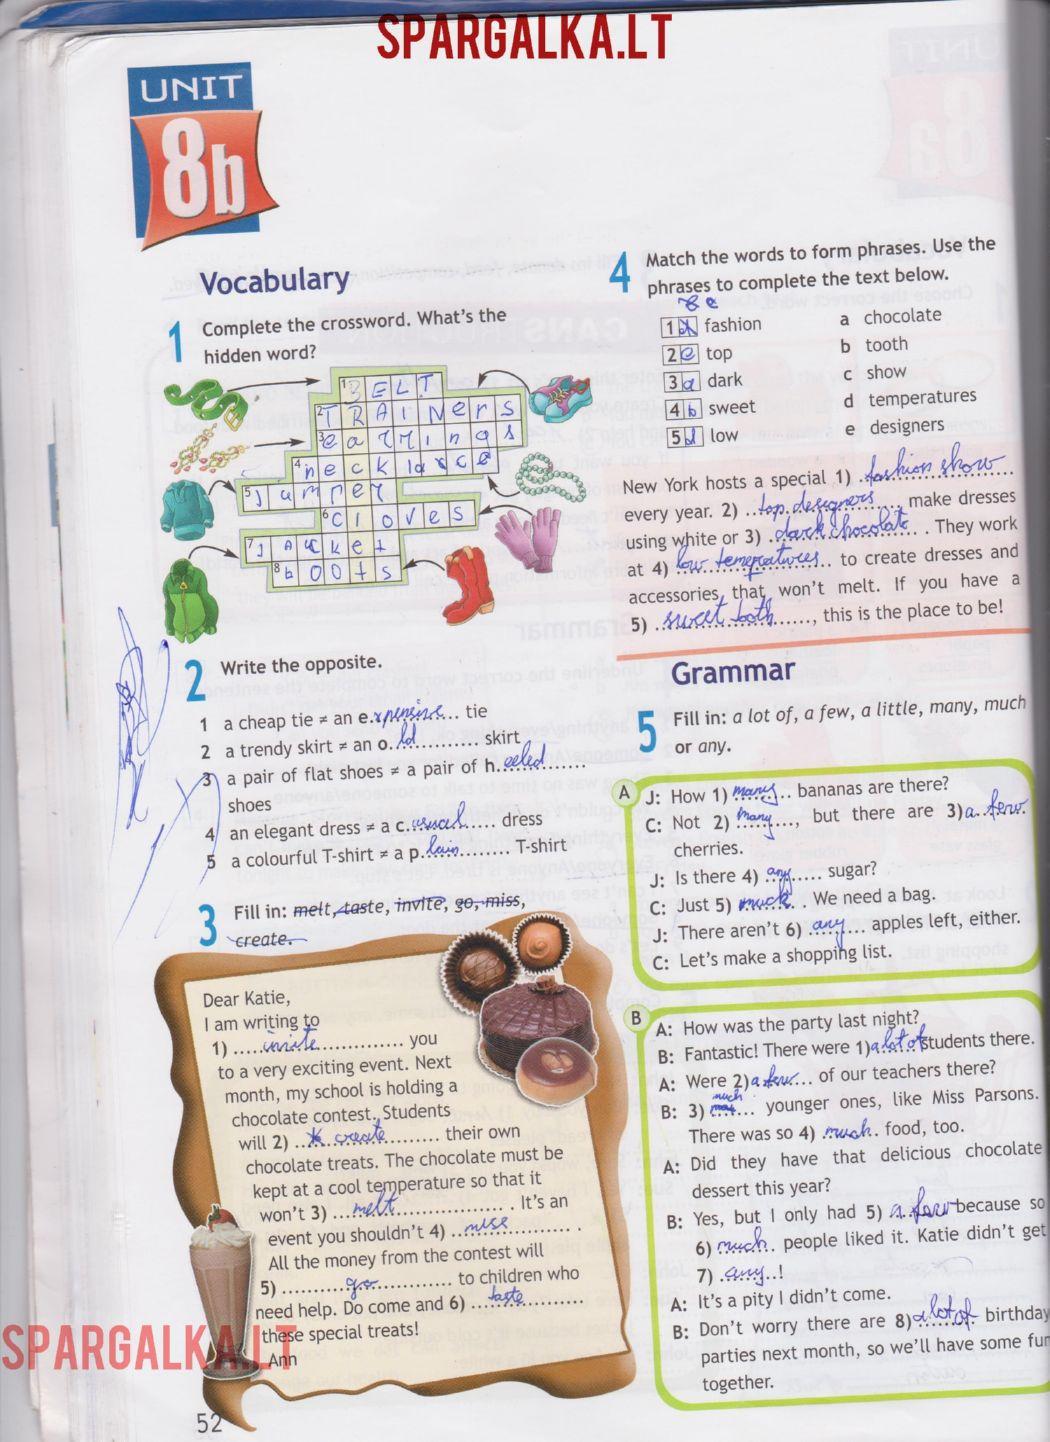 SPARGALKA.LT
UNIT
8b
Vocabulary
1 Complete the crossword. What's the
hidden word?
1 BELT
2 TRAINers
3 earrings
4 necklace
5 Jumper
6 Gloves
7 JAcket
8 boots
2 Write the opposite.
1 a cheap tie ≠ an e.xpensive... tie
2 a trendy skirt ≠ an o..ld............ skirt
3 a pair of flat shoes ≠ a pair of h..eeled........
shoes
4 an elegant dress ≠ a c..asual...... dress
5 a colourful T-shirt ≠ a p..lain.......... T-shirt
3 Fill in: melt, taste, invite, go, miss,
create.
Dear Katie,
I am writing to
1) .....invite................ you
to a very exciting event. Next
month, my school is holding a
chocolate contest. Students
will 2) ...create............ their own
chocolate treats. The chocolate must be
kept at a cool temperature so that it
won't 3) ...melt...................... . It's an
event you shouldn't 4) ..miss............ .
All the money from the contest will
5) ............go............... to children who
need help. Do come and 6) ....taste............
these special treats!
Ann
52
4 Match the words to form phrases. Use the
phrases to complete the text below.
1 c fashion a chocolate
2 e top b tooth
3 a dark c show
4 b sweet d temperatures
5 d low e designers
New York hosts a special 1) .fashion show
every year. 2) ..top designers....... make dresses
using white or 3) .dark chocolate.. . They work
at 4) low temperatures.. to create dresses and
accessories that won't melt. If you have a
5) .sweet tooth......, this is the place to be!
Grammar
5 Fill in: a lot of, a few, a little, many, much
or any.
A
J: How 1) many... bananas are there?
C: Not 2) many......, but there are 3) a few.
cherries.
J: Is there 4) any...... sugar?
C: Just 5) much... We need a bag.
J: There aren't 6) .any..... apples left, either.
C: Let's make a shopping list.
B
A: How was the party last night?
B: Fantastic! There were 1) a lot of students there.
A: Were 2) a few... of our teachers there?
B: 3) much... younger ones, like Miss Parsons.
There was so 4) .much. food, too.
A: Did they have that delicious chocolate
dessert this year?
B: Yes, but I only had 5) .a few because so
6) much.. people liked it. Katie didn't get
7) .any..!
A: It's a pity I didn't come.
B: Don't worry there are 8) a lot of. birthday
parties next month, so we'll have some fun
together.
SPARGALKA.LT